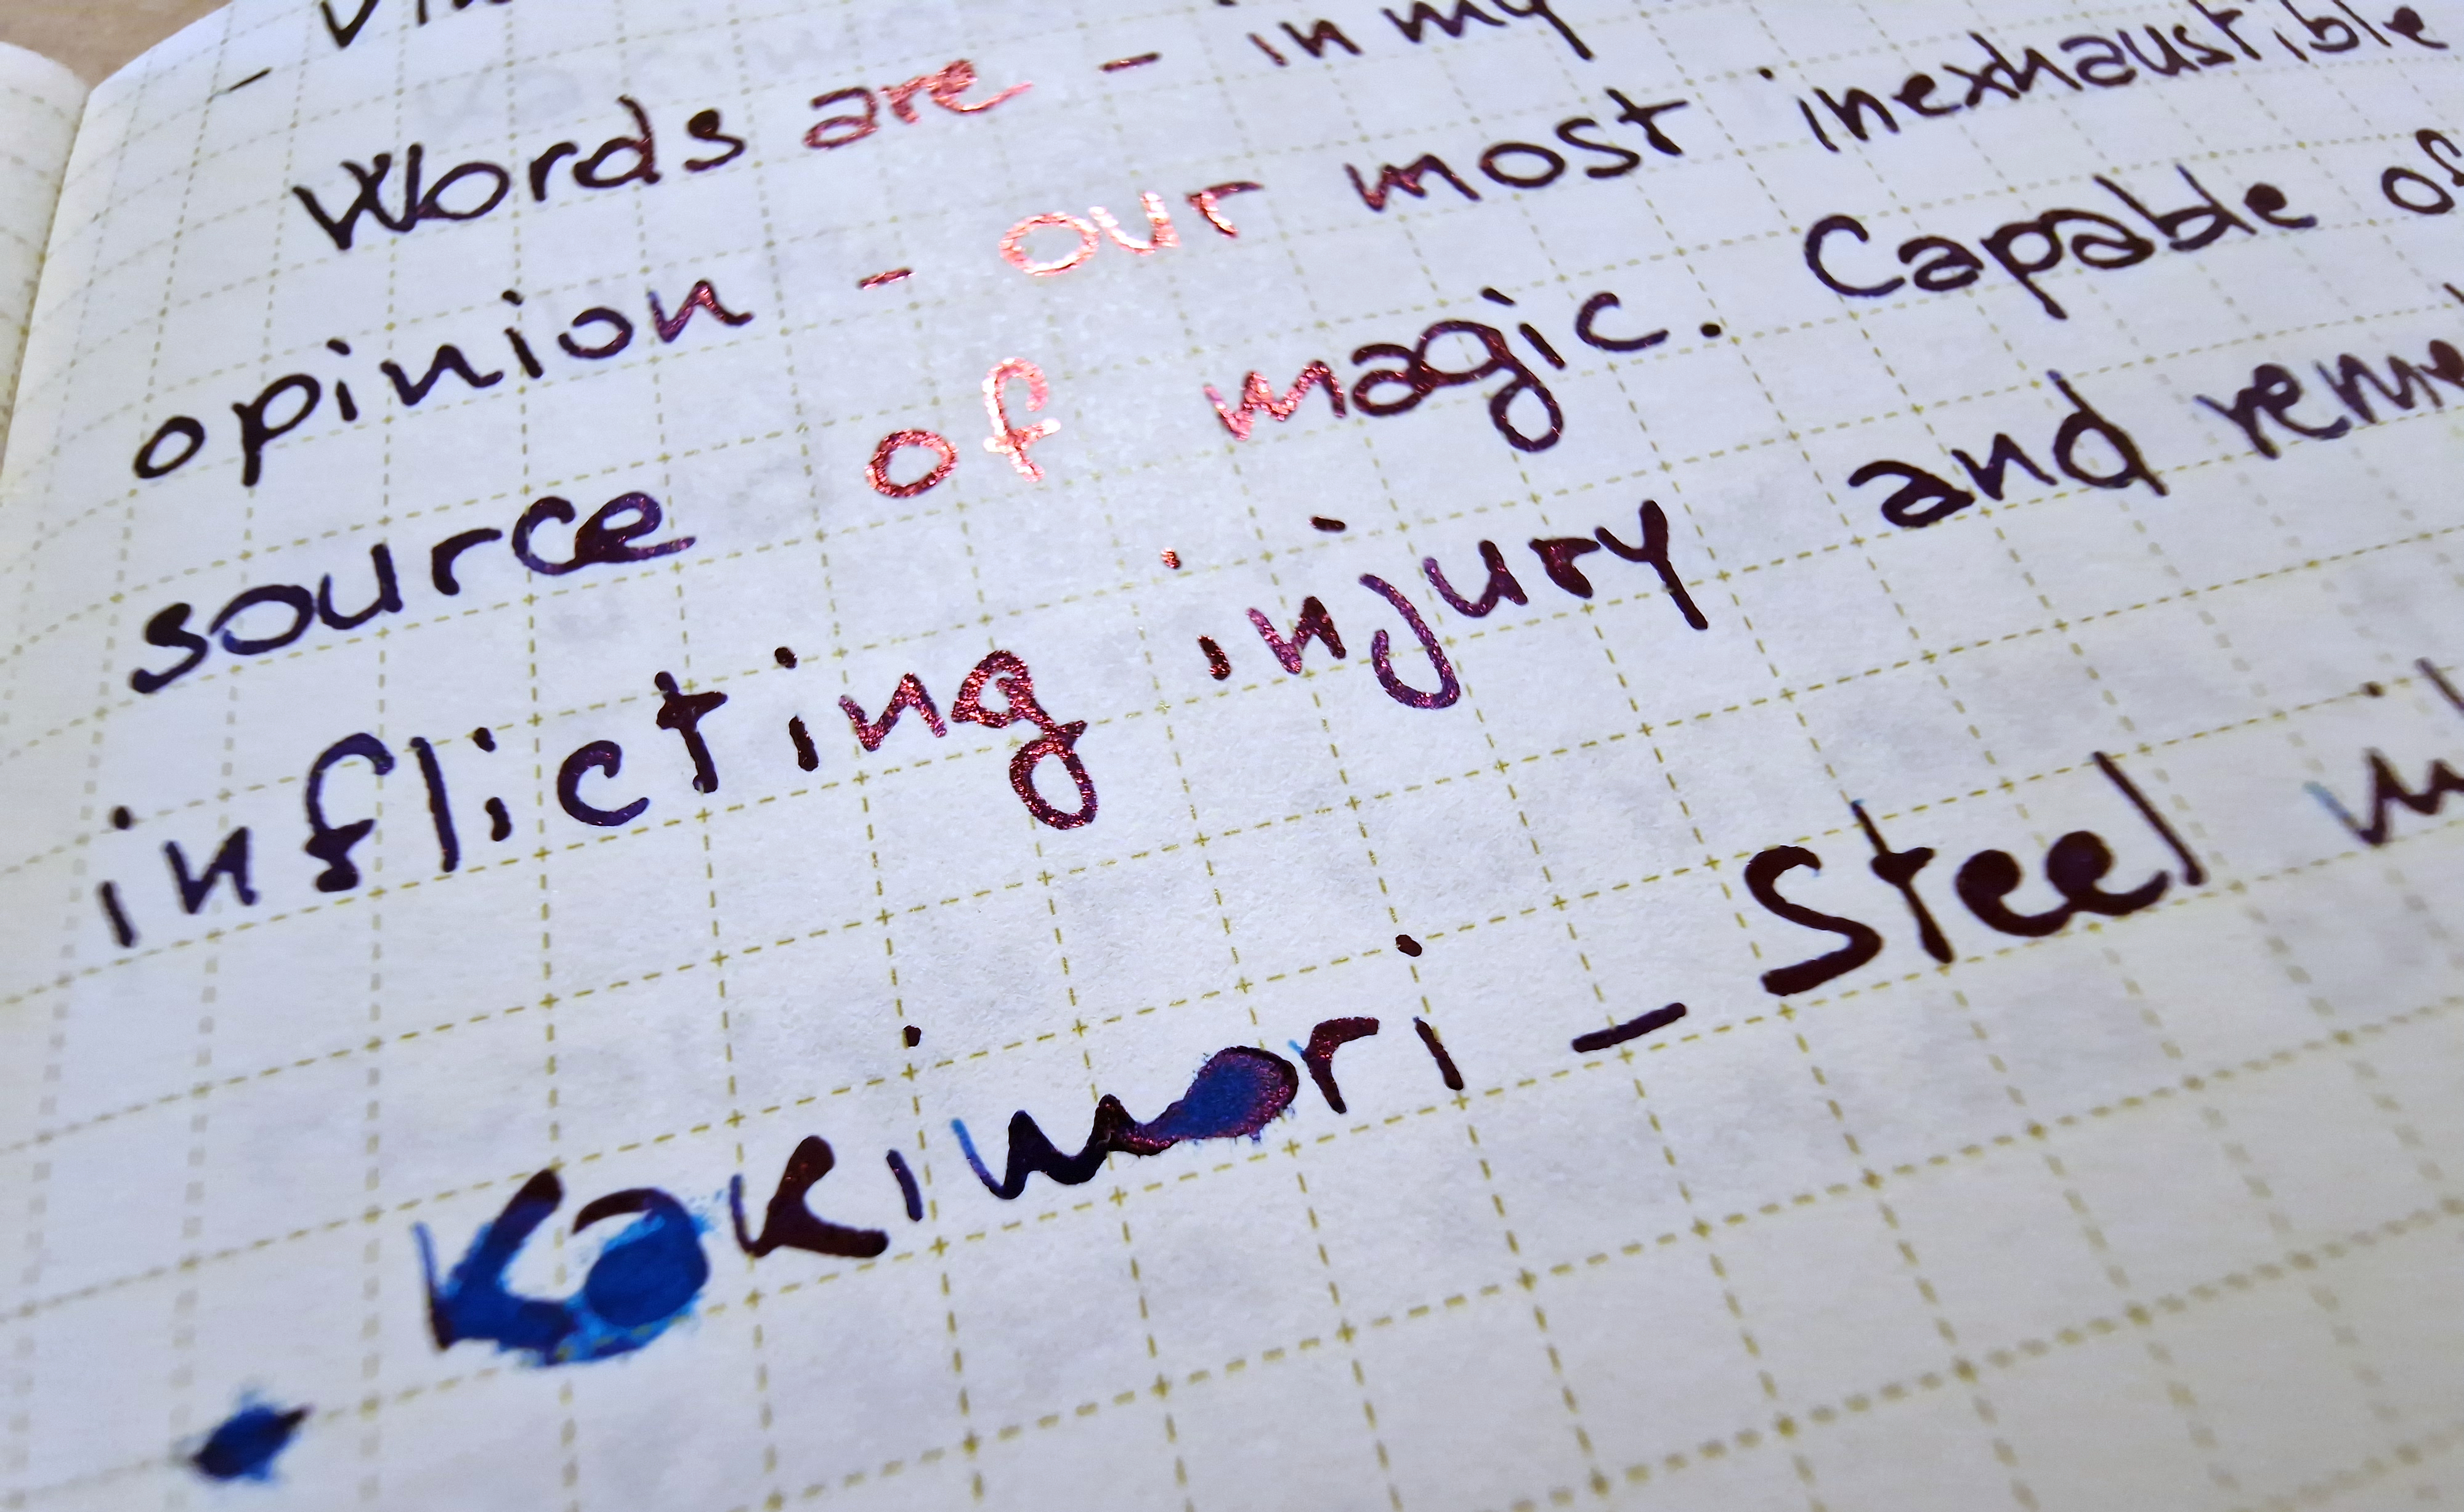 Words are - in my
opinion - our most inexhaustible
source of magic. Capable of
inflicting injury and
Kakimori - Steel